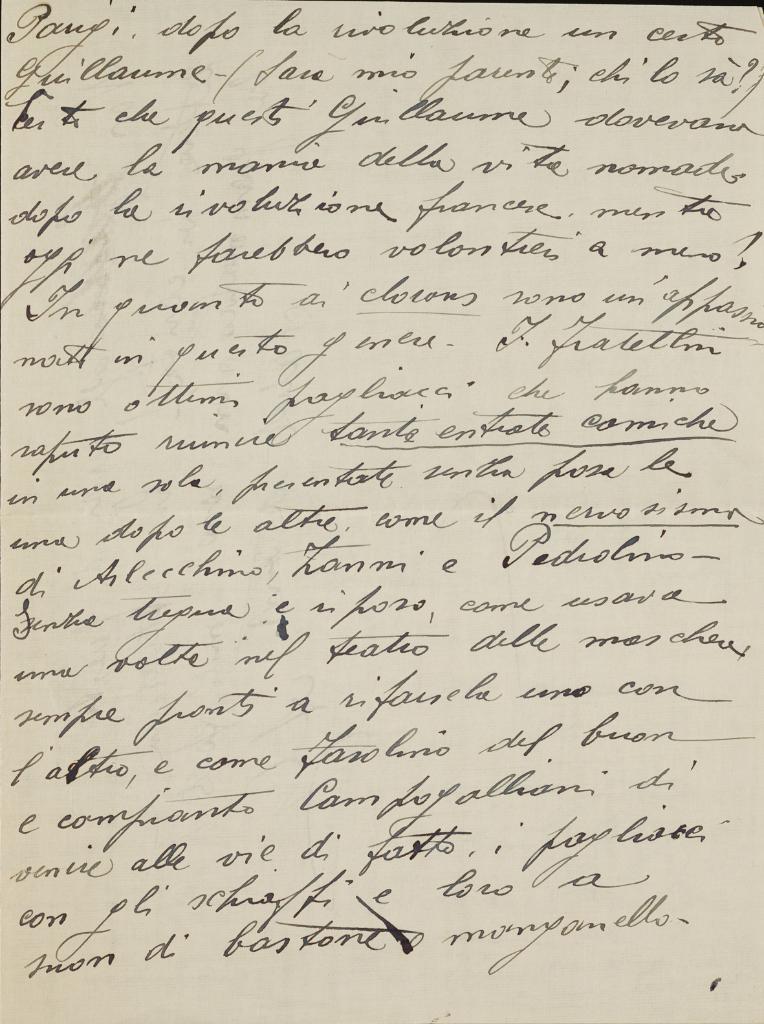 Parigi, dopo la rivoluzione un certo
Guillaume - (sarà mio parente, chi lo sà?)
Certo che questi Guillaume dovevano
avere la mania della vita nomade,
dopo la rivoluzione francese, mentre
oggi ne farebbero volontieri a meno!
In quanto ai clowns sono un'appassio-
nato in questo genere - I Fratellini
sono ottimi pagliacci che hanno
saputo riunire tante entrate comiche
in una sola, presentate senza posa le
una dopo le altre, come il nervosismo
di Arlecchino, Zanni e Pedrolino -
Senza tregua e riposo, come usava
una volta nel teatro delle maschere,
sempre pronti a rifarsela uno con
l'altro, e come Fasolino del buon
e compianto Campogalliani di
venire alle vie di fatto, i pagliacci
con gli schiaffi e loro a
suon di bastone o manganello -